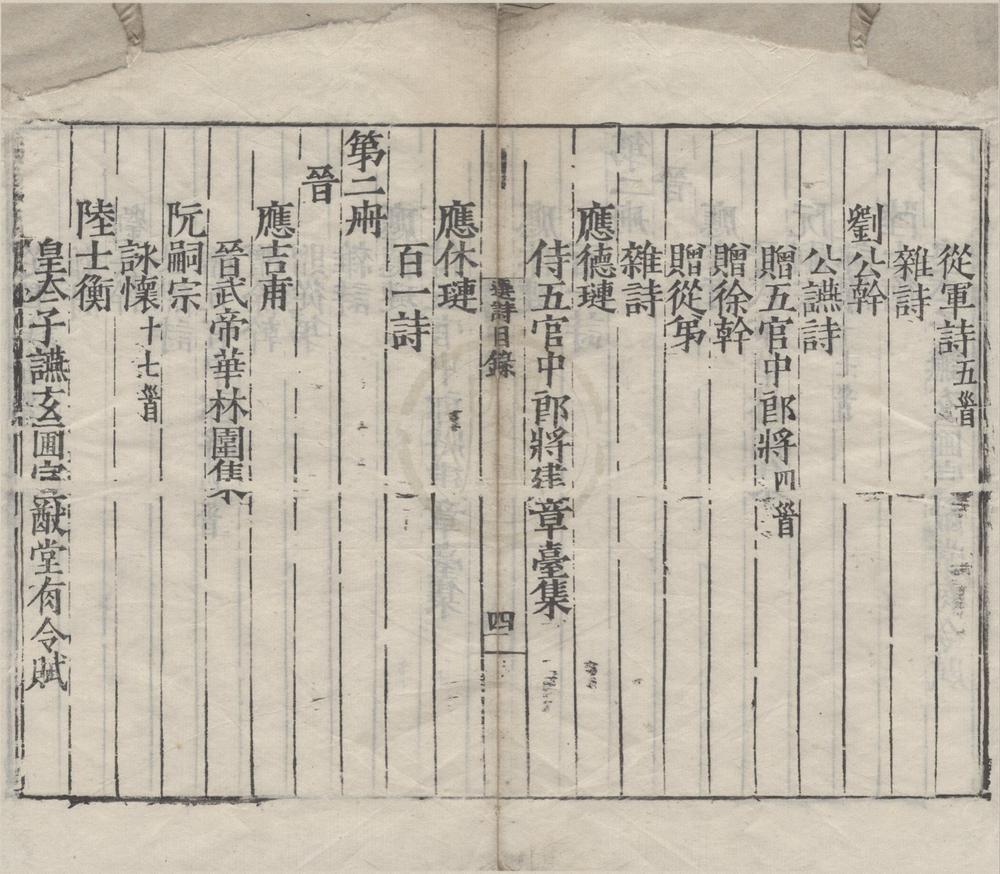 從軍詩五首
雜詩
劉公幹
公讌詩
贈五官中郎將四首
贈徐幹
贈從弟
雜詩
應德璉
侍五官中郎將建章臺集
選詩目錄
四
應休璉
百一詩
第二冊
晉
應吉甫
晉武帝華林園集
阮嗣宗
詠懷十七首
陸士衡
皇太子讌玄圃宣猷堂有令賦